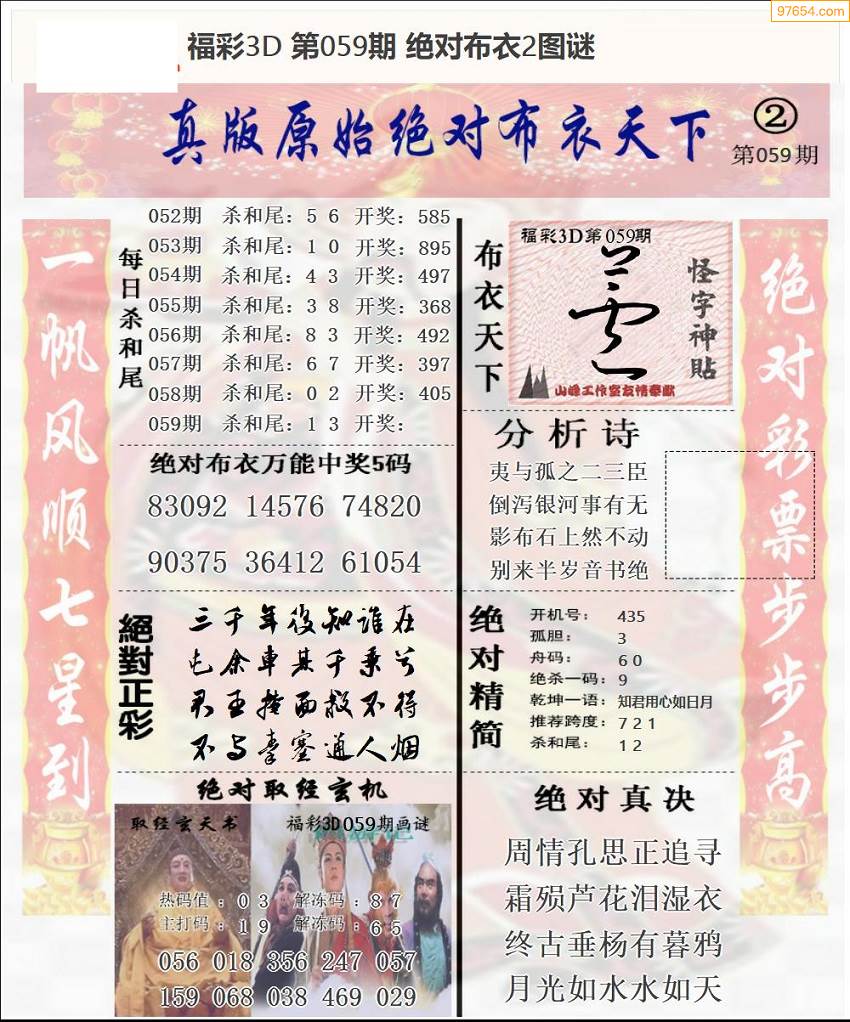 97654.com
福彩3D 第059期 绝对布衣2图谜
真版原始绝对布衣天下
②
第059期
一帆风顺七星到
每日杀和尾
052期 杀和尾：5 6 开奖：585
053期 杀和尾：1 0 开奖：895
054期 杀和尾：4 3 开奖：497
055期 杀和尾：3 8 开奖：368
056期 杀和尾：8 3 开奖：492
057期 杀和尾：6 7 开奖：397
058期 杀和尾：0 2 开奖：405
059期 杀和尾：1 3 开奖：
绝对布衣万能中奖5码
83092 14576 74820
90375 36412 61054
絕對正彩
三千年後知谁在
屯余車其千乘兮
君王掩面救不得
不与秦塞通人烟
绝对取经玄机
取经玄天书
福彩3D059期画谜
热码值：0 3 解冻码：8 7
主打码：1 9 解冻码：6 5
056 018 356 247 057
159 068 038 469 029
布衣天下
福彩3D第059期
怪字神貼
山峰工作室友情奉献
分析诗
夷与孤之二三臣
倒泻银河事有无
影布石上然不动
别来半岁音书绝
绝对精简
开机号： 435
孤胆： 3
舟码： 6 0
绝杀一码：9
乾坤一语：知君用心如日月
推荐跨度：7 2 1
杀和尾： 1 2
绝对真决
周情孔思正追寻
霜殒芦花泪湿衣
终古垂杨有暮鸦
月光如水水如天
绝对彩票步步高